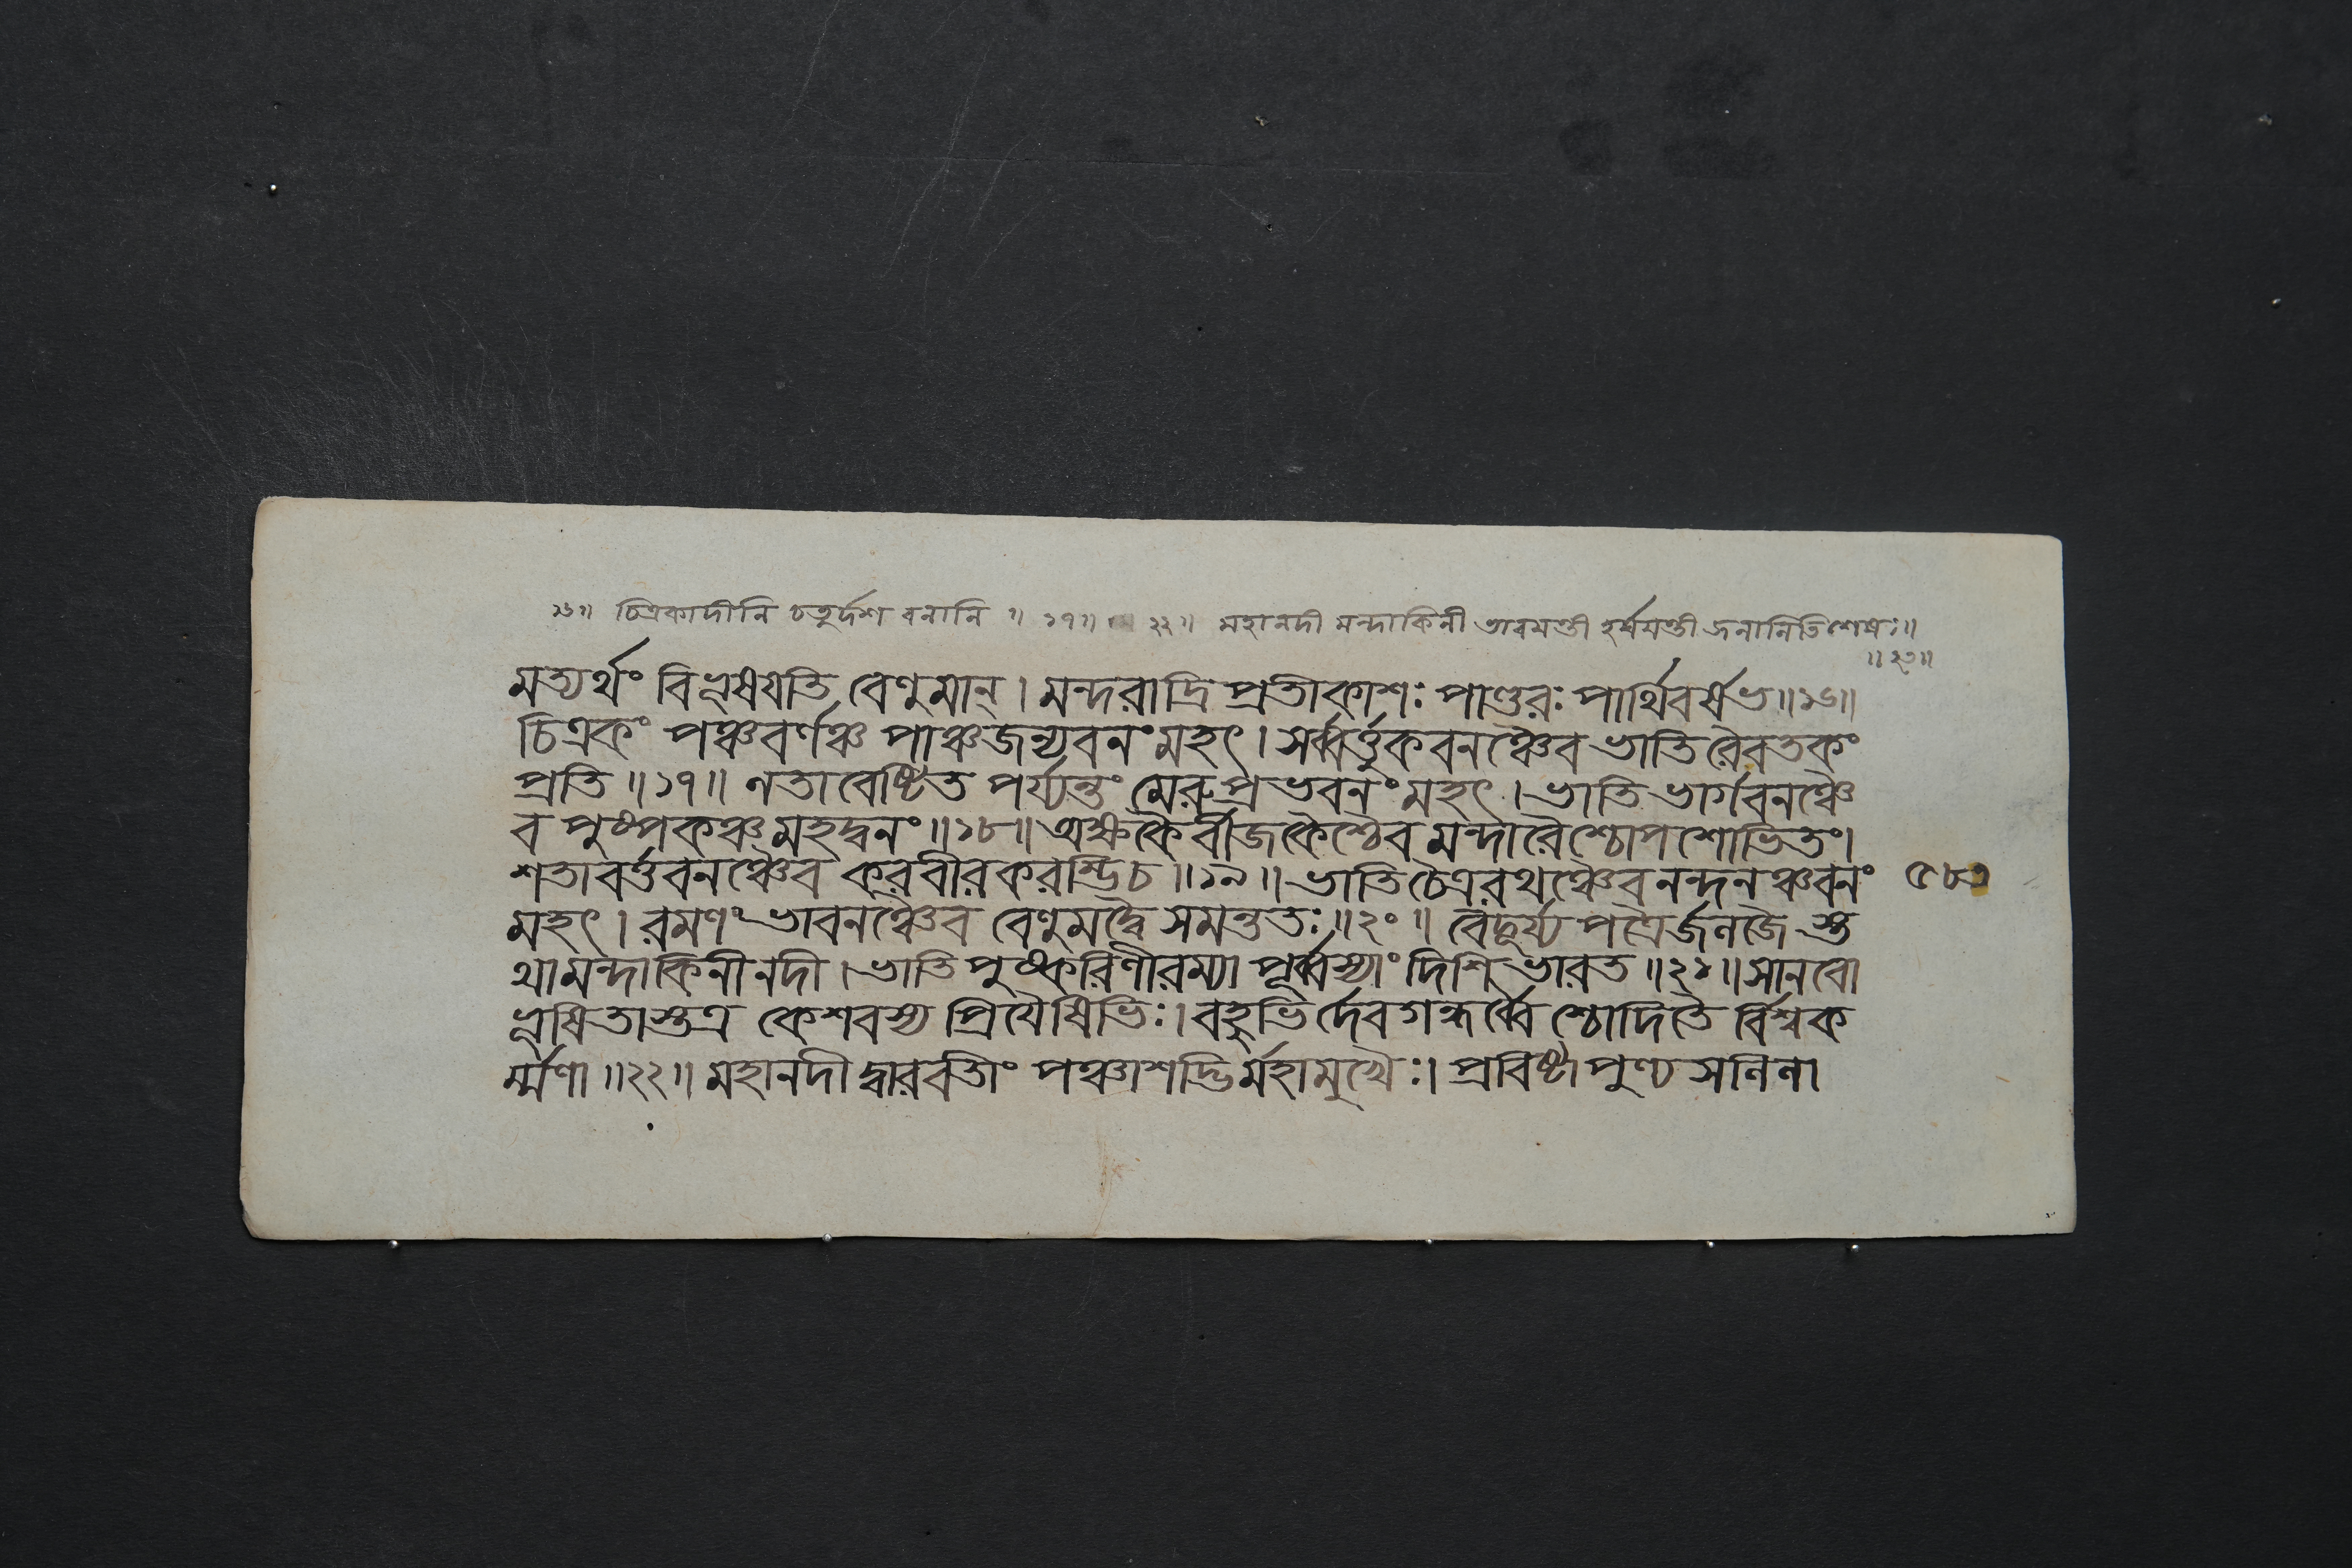 ১৬॥ চিত্রকাদীনি চতুর্দশ বনানি ॥ ১৭॥ ২২॥ মহানদী মন্দাকিনী ভাবমন্তী হর্ষমন্তী জনানিতি শেষঃ॥
॥২৩॥
মত্যর্থং বিভূষযতি বেণুমান্ । মন্দরাদ্রি প্রতীকাশঃ পাণ্ডরঃ পার্থিবর্ষভ ॥১৬॥
চিত্রকং পঞ্চবর্ণঞ্চ পাঞ্চজন্যবনং মহৎ । সর্ব্বর্ত্তুকবনঞ্চৈব ভাতি রৈবতকং
প্রতি ॥১৭॥ লতাবেষ্টিত পর্য্যন্তং মেরুপ্রভবনং মহৎ । ভাতি ভার্গবনঞ্চৈ
ব পুষ্পকঞ্চ মহদ্বনং ॥১৮॥ অক্ষকৈর্বীজকৈশ্চৈব মন্দারৈশ্চোপশোভিতং।
শতাবর্ত্তবনঞ্চৈব করবীরকরম্ভিচ ॥১৯॥ ভাতি চৈত্ররথঞ্চৈব নন্দনঞ্চবনং
৫৮৩
মহৎ । রমণং ভাবনঞ্চৈব বেণুমদ্বৈ সমন্ততঃ ॥২০॥ বৈদূর্য্য পত্রৈর্জলজৈ স্ত
থা মন্দাকিনী নদী । ভাতি পুষ্করিণী রম্যা পূর্ব্বস্যাং দিশি ভারত ॥২১॥ সানবো
ভূষিতাস্তত্র কেশবস্য প্রিযৈষিভিঃ । বহুভি র্দেবগন্ধর্ব্বৈ শ্চোদিতৈ র্বিশ্বক
র্ম্মণা ॥২২॥ মহানদী দ্বারবতীং পঞ্চাশদ্ভির্মহামুখৈঃ । প্রবিষ্টা পুণ্য সলিলা